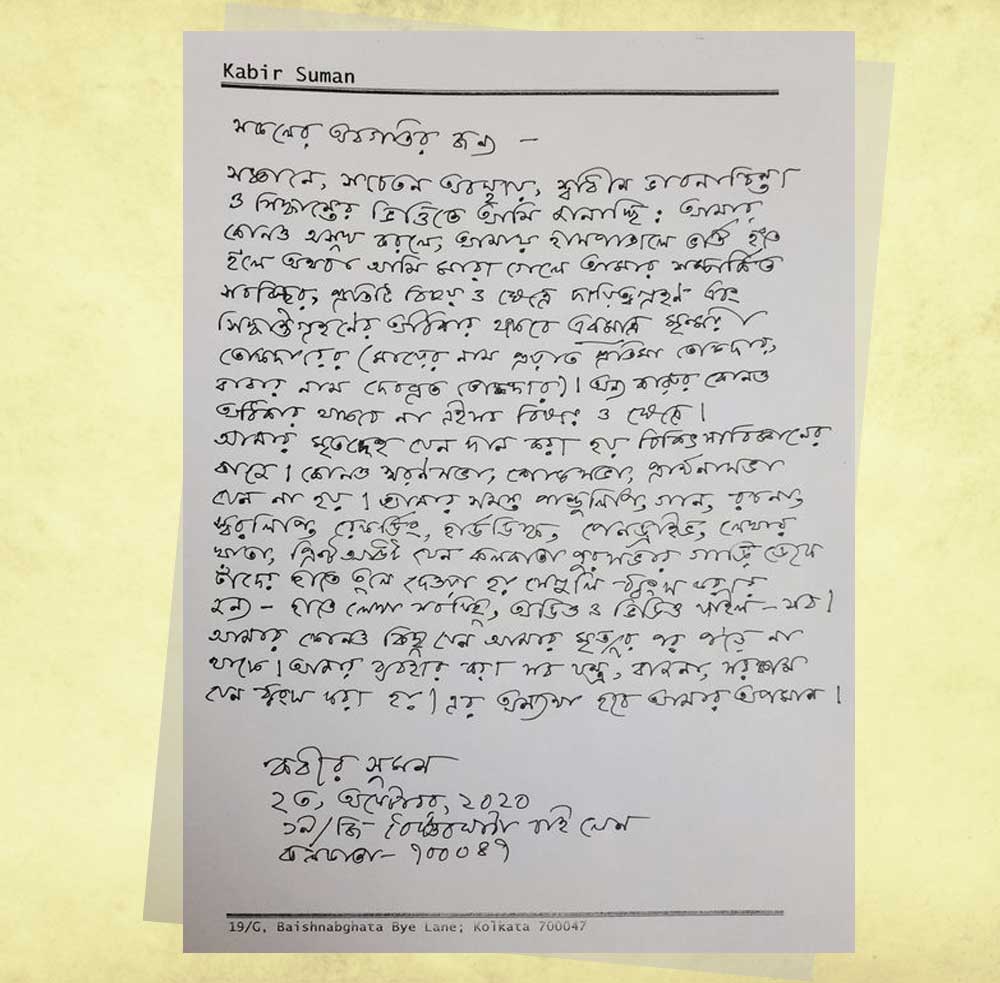 Kabir Suman
সকলের অবগতির জন্য –
সজ্ঞানে, সচেতন অবস্থায়, স্বাধীন ভাবনাচিন্তা
ও সিদ্ধান্তের ভিত্তিতে আমি জানাচ্ছি: আমার
কোনও অসুখ করলে, আমায় হাসপাতালে ভর্তি হতে
হলে অথবা আমি মারা গেলে আমার সম্পর্কিত
সবকিছুর, প্রতিটি বিষয় ও ক্ষেত্রে দায়িত্বগ্রহণ এবং
সিদ্ধান্তগ্রহণের অধিকার থাকবে একমাত্র মৃন্ময়ী
তোকদারের (মায়ের নাম প্রয়াত প্রতিমা তোকদার,
বাবার নাম দেবব্রত তোকদার)। অন্য কারুর কোনও
অধিকার থাকবে না এইসব বিষয়ে ও ক্ষেত্রে।
আমার মৃতদেহ যেন দান করা হয় চিকিৎসাবিজ্ঞানের
কাজে। কোনও স্মরণসভা, শোকসভা, প্রার্থনাসভা
যেন না হয়। আমার সমস্ত পাণ্ডুলিপি, গান, রচনা,
স্বরলিপি, রেকর্ডিং, হার্ড ডিস্ক, পেনড্রাইভ, লেখার
খাতা, প্রিন্ট আউট যেন কলকাতা পুরসভার গাড়ি ডেকে
তাঁদের হাতে তুলে দেওয়া হয় সেগুলি ধ্বংস করার
জন্য – হাতে লেখা সবকিছু, অডিও ও ভিডিও ফাইল – সব।
আমার কোনও কিছু যেন আমার মৃত্যুর পর পড়ে না
থাকে। আমার ব্যবহার করা সব যন্ত্র, বাজনা, সরঞ্জাম
যেন ধ্বংস করা হয়। এর অন্যথা হবে আমার অপমান।
কবীর সুমন
২৩, অক্টোবর, ২০২০
১৯/জি বৈষ্ণবঘাটা বাই লেন
কলকাতা– ৭০০০৪৭
19/G, Baishnabghata Bye Lane; Kolkata 700047